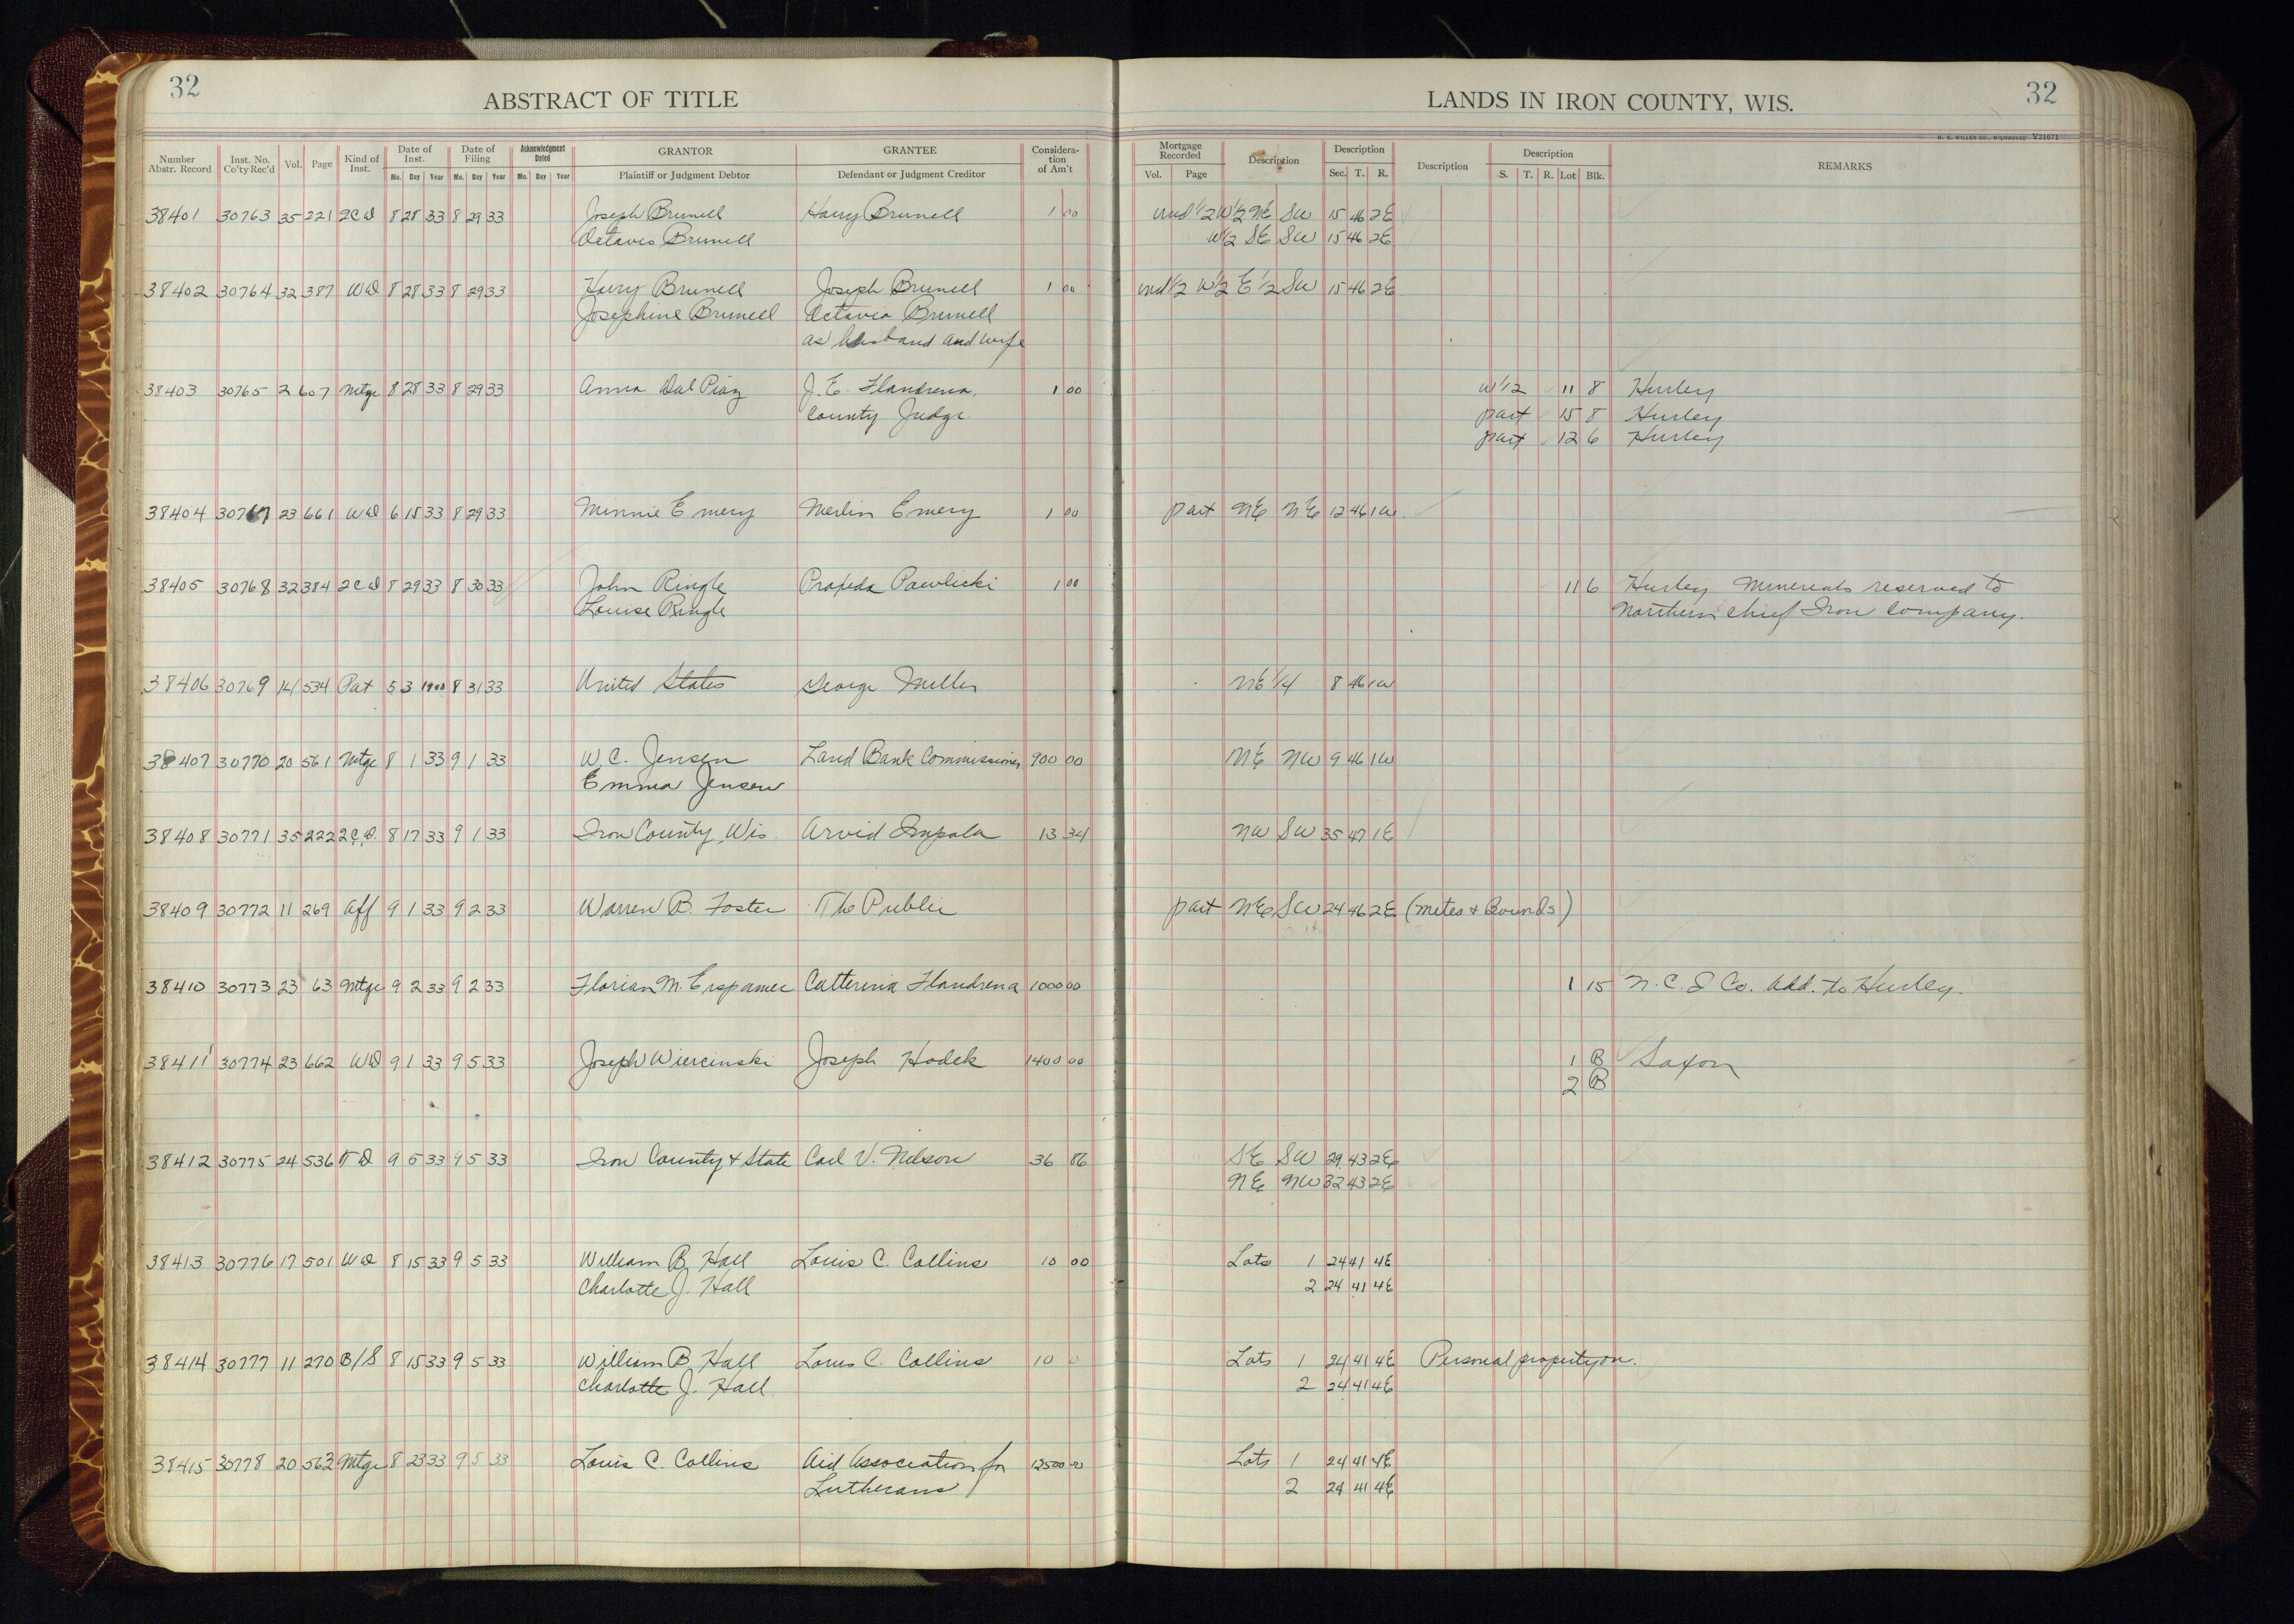 32
ABSTRACT OF TITLE
LANDS IN IRON COUNTY, WIS.
32
H. C. MILLER CO., MILWAUKEE Y21671
Number Abstr. Record Inst. No. Co'ty Rec'd Vol. Page Kind of Inst. Date of Inst. Mo. Day Year Date of Filing Mo. Day Year Acknowledgment Dated Mo. Day Year GRANTOR Plaintiff or Judgment Debtor GRANTEE Defendant or Judgment Creditor Consideration of Am't Mortgage Recorded Vol. Page Description Description Sec. T. R. Description Description S. T. R. Lot Blk. REMARKS
38401 30763 35 221 2CD 8 28 33 8 29 33 Joseph Brunell Harry Brunell 1 00 und 1/2 W1/2 NE SW 15 46 2E
Octavis Brunell W1/2 SE SW 15 46 2E
38402 30764 32 387 WD 8 28 33 8 29 33 Harry Brunell Joseph Brunell 1 00 und 1/2 W1/2 E1/2 SW 15 46 2E
Josephine Brunell Octavia Brunell
as husband and wife
38403 30765 2 607 Mtge 8 28 33 8 29 33 Anna Dal Piaz J. E. Flandrena, 1 00 W1/2 11 8 Hurley
County Judge. part 15 8 Hurley
part 12 6 Hurley
38404 30767 23 661 WD 6 15 33 8 29 33 Minnie Emery Merlin Emery 1 00 part NE NE 12 46 1W
38405 30768 32 384 2CD 8 29 33 8 30 33 John Ringle Pawlicki 1 00 11 6 Hurley Minerals reserved to
Louise Ringle Northern Chief Iron Company.
38406 30769 14 534 Pat 5 3 1900 8 31 33 United States George Miller NE 1/4 8 46 1W
38407 30770 20 561 Mtge 8 1 33 9 1 33 W. C. Jensen Land Bank Commissioner 900 00 NE NW 9 46 1W
Emma Jensen
38408 30771 35 222 2C.D. 8 17 33 9 1 33 Iron County, Wis. Arvid Impola 13 34 NW SW 35 47 1E
38409 30772 11 269 Aff 9 1 33 9 2 33 Warren B. Foster The Public part NE SW 24 46 2E (Metes & Bounds)
38410 30773 23 63 Mtge 9 2 33 9 2 33 Florian M. Erspamer Catterina Flandrena 1000 00 1 15 N. C. I Co. Add. to Hurley.
38411 30774 23 662 WD 9 1 33 9 5 33 Joseph Wiercinski Joseph Hodek 1400 00 1 B Saxon
2 B
38412 30775 24 536 TD 9 5 33 9 5 33 Iron County & State Carl V. Nelson 36 86 SE SW 29 43 2E
NE NW 32 43 2E
38413 30776 17 501 WD 8 15 33 9 5 33 William B. Hall Louis C. Collins 10 00 Lots 1 24 41 4E
Charlotte J. Hall 2 24 41 4E
38414 30777 11 270 B/S 8 15 33 9 5 33 William B. Hall Louis C. Collins 10 0 Lots 1 24 41 4E Personal property on.
Charlotte J. Hall 2 24 41 4E
38415 30778 20 562 Mtge 8 23 33 9 5 33 Louis C. Collins Aid Association for 12500 00 Lots 1 24 41 4E
Lutherans 2 24 41 4E